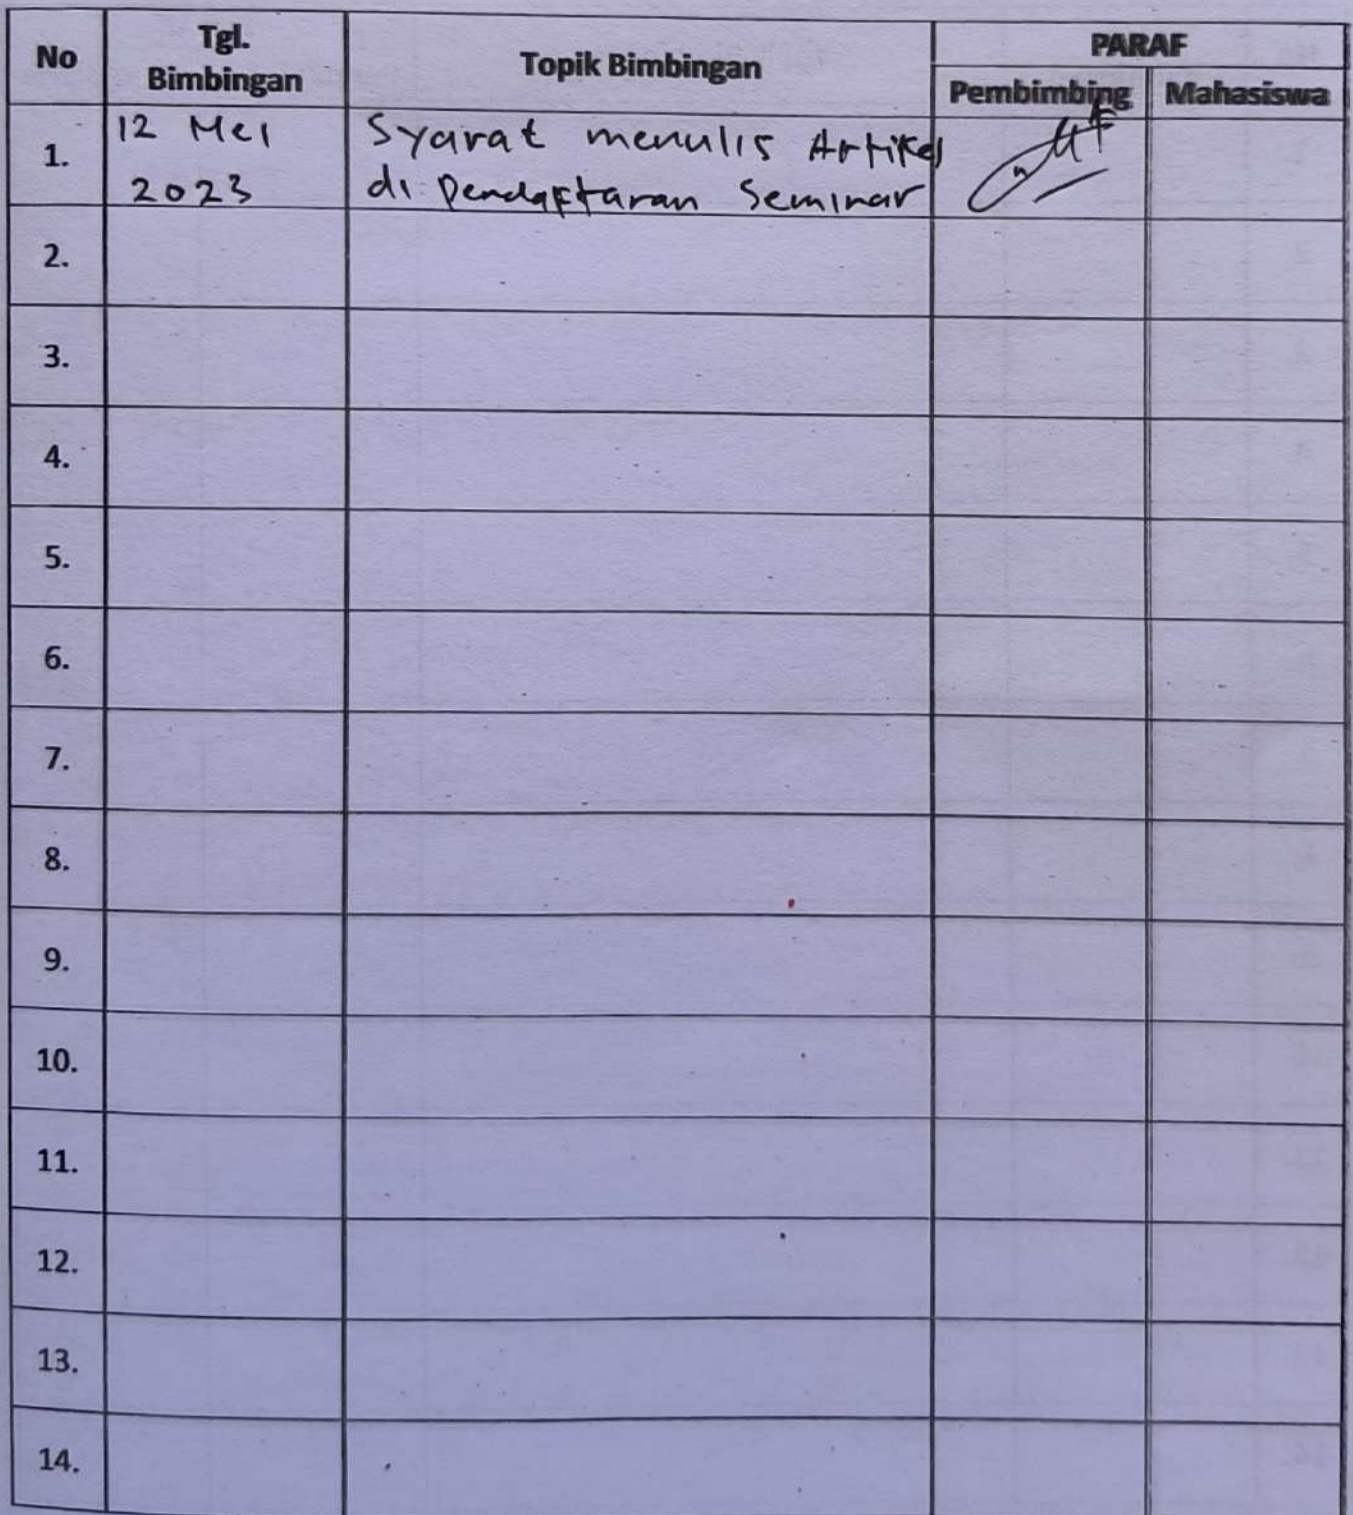 No Tgl. Bimbingan Topik Bimbingan PARAF
Pembimbing Mahasiswa
1. 12 Mei 2023 Syarat menulis Artikel
di Pendaftaran Seminar
2.
3.
4.
5.
6.
7.
8.
9.
10.
11.
12.
13.
14.